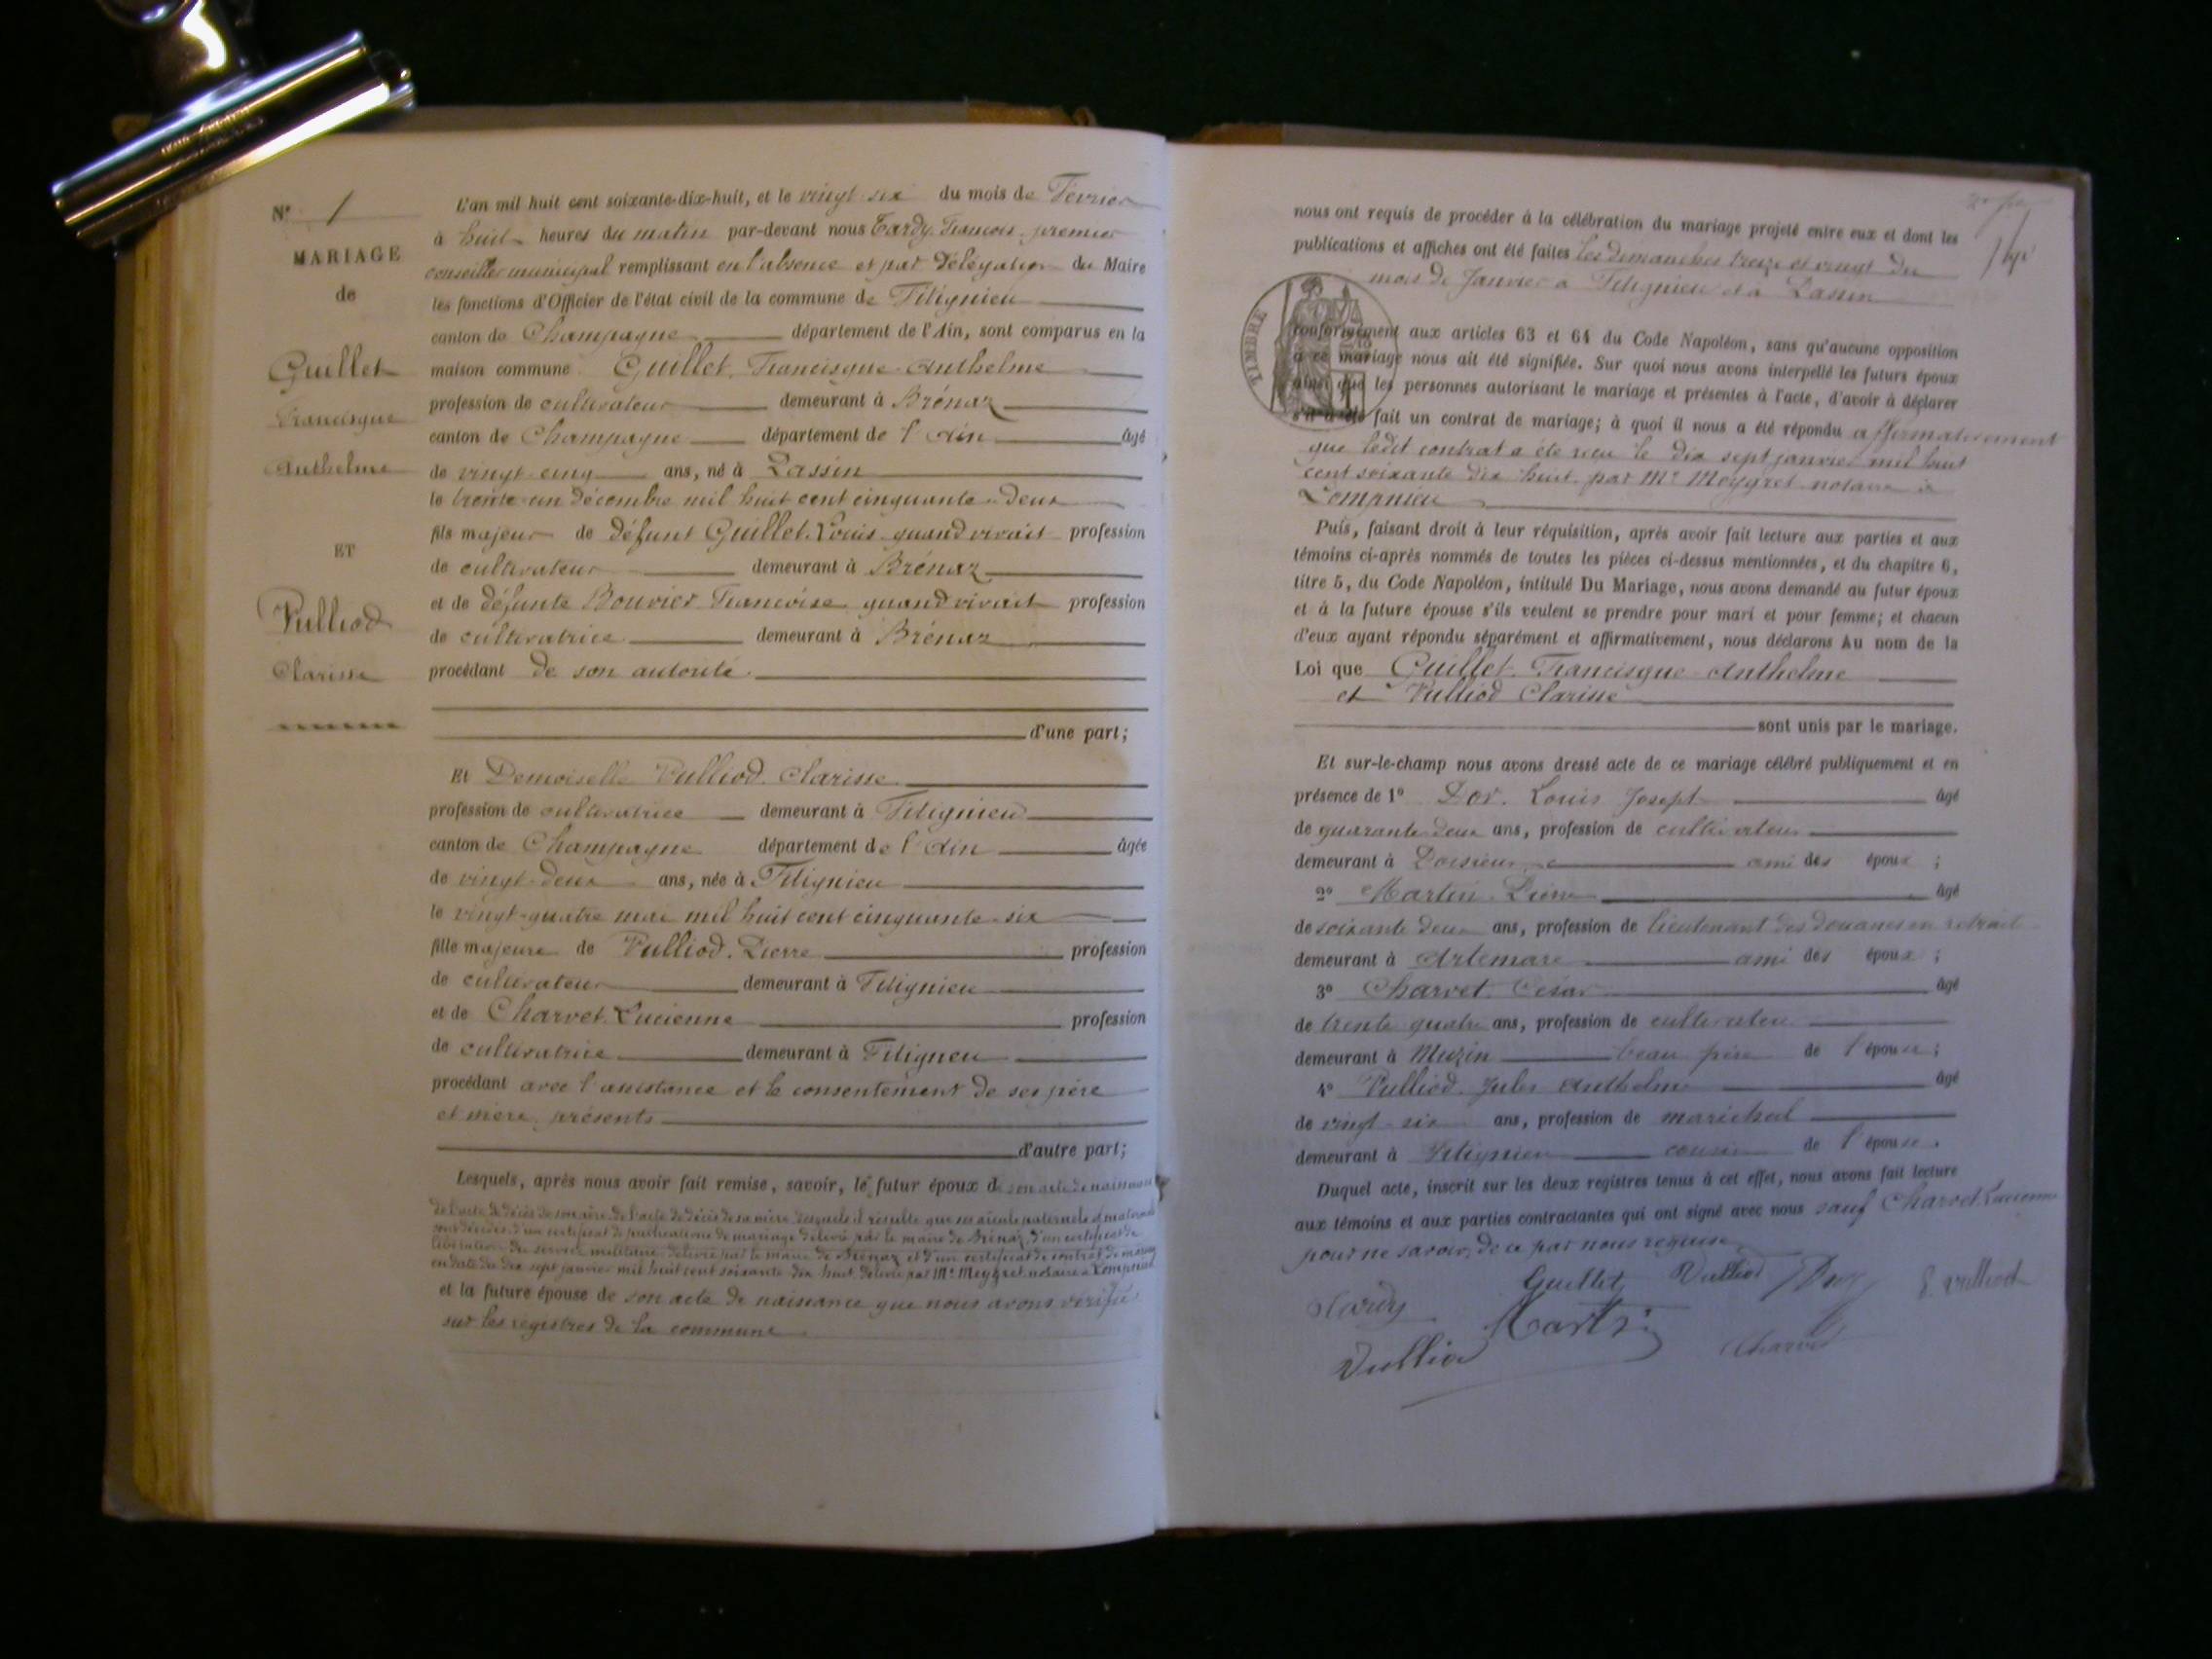 N° 1
MARIAGE
de
Guillet
Francisque
Anthelme
ET
Vulliod
Clarisse
L'an mil huit cent soixante-dix-huit, et le vingt six du mois de Février
à huit heures du matin par-devant nous Tardy François premier
conseiller municipal remplissant en l'absence et par délégation du Maire
les fonctions d'Officier de l'état civil de la commune de Fitignieu
canton de Champagne département de l'Ain, sont comparus en la
maison commune Guillet Francisque Anthelme
profession de cultivateur demeurant à Brénaz
canton de Champagne département de l'Ain âgé
de vingt cinq ans, né à Lassin
le trente un décembre mil huit cent cinquante deux
fils majeur de défunt Guillet Louis quand vivait profession
de cultivateur demeurant à Brénaz
et de défunte Bouvier Françoise quand vivait profession
de cultivatrice demeurant à Brénaz
procédant de son autorité
d'une part;
Et Demoiselle Vulliod Clarisse
profession de cultivatrice demeurant à Fitignieu
canton de Champagne département de l'Ain âgée
de vingt deux ans, née à Fitignieu
le vingt-quatre mai mil huit cent cinquante six
fille majeure de Vulliod Pierre profession
de cultivateur demeurant à Fitignieu
et de Charvet Lucienne profession
de cultivatrice demeurant à Fitigneu
procédant avec l'assistance et le consentement de ses père
et mère présents
d'autre part;
Lesquels, après nous avoir fait remise, savoir, le futur époux de son acte de naissance
de l'acte de décès de son père, de l'acte de décès de sa mère desquels il résulte que ses aïeuls paternels et maternels
sont décédés, d'un certificat de publications de mariage délivré par le maire de Brénaz, d'un certificat de
libération du service militaire délivré par le maire de Brénaz et d'un certificat de contrat de mariage
en date du dix sept janvier mil huit cent soixante dix huit délivré par Me Meygret notaire à Lompnieu
et la future épouse de son acte de naissance que nous avons vérifié
sur les registres de la commune
nous ont requis de procéder à la célébration du mariage projeté entre eux et dont les
publications et affiches ont été faites les dimanches treize et vingt du
mois de Janvier à Fitignieu et à Lassin
TIMBRE
conformément aux articles 63 et 64 du Code Napoléon, sans qu'aucune opposition
à ce mariage nous ait été signifiée. Sur quoi nous avons interpellé les futurs époux
ainsi que les personnes autorisant le mariage et présentes à l'acte, d'avoir à déclarer
s'il a été fait un contrat de mariage; à quoi il nous a été répondu affirmativement
que ledit contrat a été reçu le dix sept janvier mil huit
cent soixante dix huit par Me Meygret notaire à
Lompnieu
Puis, faisant droit à leur réquisition, après avoir fait lecture aux parties et aux
témoins ci-après nommés de toutes les pièces ci-dessus mentionnées, et du chapitre 6,
titre 5, du Code Napoléon, intitulé Du Mariage, nous avons demandé au futur époux
et à la future épouse s'ils veulent se prendre pour mari et pour femme; et chacun
d'eux ayant répondu séparément et affirmativement, nous déclarons Au nom de la
Loi que Guillet Francisque Anthelme
et Vulliod Clarisse
sont unis par le mariage.
Et sur-le-champ nous avons dressé acte de ce mariage célébré publiquement et en
présence de 1° Dor Louis Josept âgé
de quarante deux ans, profession de cultivateur
demeurant à ami des époux;
2° Martin Pierre âgé
de soixante deux ans, profession de lieutenant des douanes en retraite
demeurant à Artemare ami des époux;
3° Charvet César âgé
de trente quatre ans, profession de cultivateur
demeurant à Muzin beau frère de l'épouse;
4° Vulliod Jules Anthelme âgé
de vingt six ans, profession de maréchal
demeurant à Fitignieu cousin de l'épouse.
Duquel acte, inscrit sur les deux registres tenus à cet effet, nous avons fait lecture
aux témoins et aux parties contractantes qui ont signé avec nous sauf Charvet Lucienne
pour ne savoir, de ce par nous requise
Guillet Vulliod Dor J. Vulliod
Tardy Martin
Vulliod Charvet